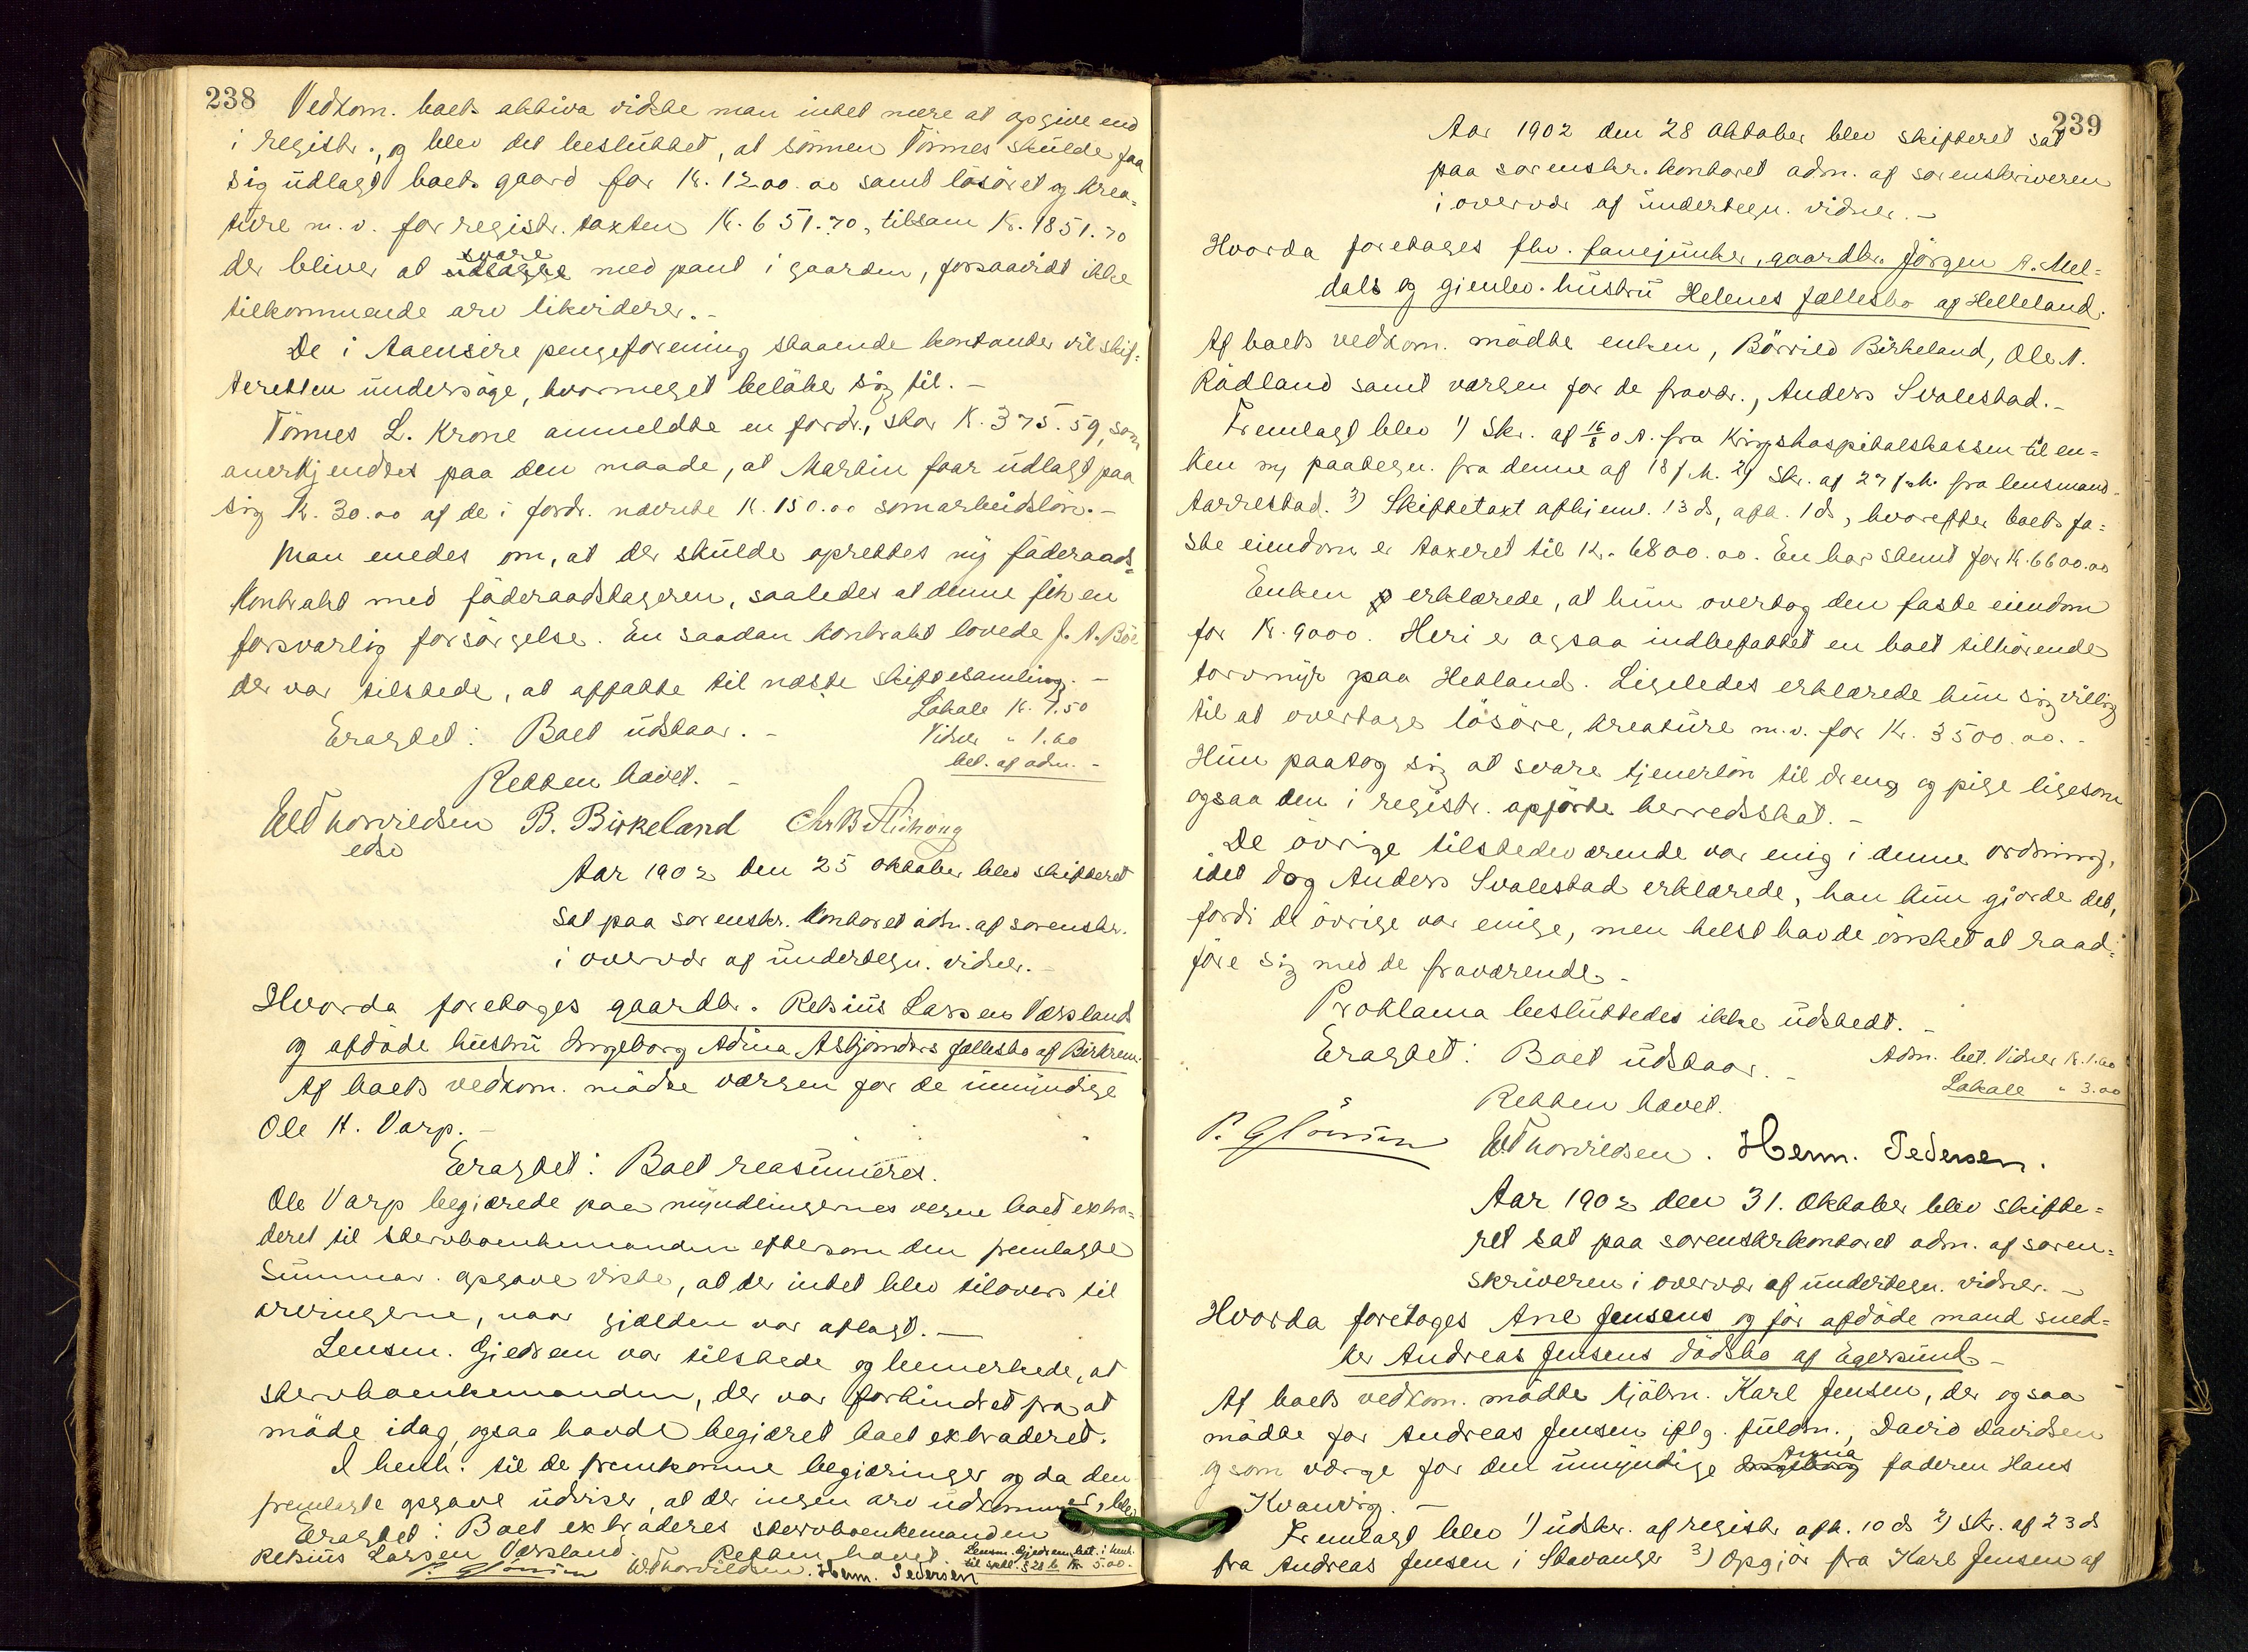 238
Vedkom. boets aktiva vidste man intet mere at opgive end
i registr., og blev det besluttet, at sönnen Tönnes skulde faa
sig udlagt boets gaard for K. 1200.00 samt lösöret og krea-
ture m.v. for registr. taxten K. 651.70, tilsam K. 1851.70
der bliver at udlægge svare med pant i gaarden, forsaavidt ikke
tilkommende arv likviderer.-
De i Aaensire pengeforening staaende kontanter vil skif-
teretten undersöge, hvormeget belöber sig til.-
Tönnes L. Krone anmeldte en fordr., stor K. 375.59, som
anerkjendtes paa den maade, at Martin faar udlagt paa
sig K. 30.00 af de i fordr. nævnte K. 150.00 som arbeidslön.-
Man enedes om, at der skulde oprettes ny föderaads-
kontrakt med föderaadstageren, saaledes at denne fik en
forsvarlig forsörgelse. En saadan kontrakt lovede J. A.
der var tilstede, at affatte til næste skiftesamling.-
Lokale K. 1.50
Eragtet: Boet udstaar.-
Vidner " 1.60
bet. af adm.-
Retten hævet.-
WThorvildsen B. Birkeland Chr B
edsv
Aar 1902 den 25 oktober blev skifteret
sat paa sorenskr. kontoret adm. af sorenskr.
i overvær af undertegn. vidner.-
Hvorda foretoges gaardbr. Retsius Larsen Versland
og afdöde hustru Ingeborg Adina Asbjörnsdrs fællesbo af Birkrem.
Af boets vedkom. mödte værgen for de umyndige
Ole H. Varp.-
Eragtet: Boet reasumeres.
Ole Varp begjærede paa myndlingernes vegne boet extra-
deret til stervboenkemanden eftersom den fremlagte
Summar. opgave viste, at der intet blev tilovers til
arvingerne, naar gjælden var aflagt.-
Lensm. Gjedrem var tilstede og bemerkede, at
stervboenkemanden, der var forhindret fra at
möde idag, ogsaa havde begjæret boet extraderet.
I henh. til de fremkomne begjæringer og da den
fremlagte opgave udviser, at der ingen arv udkommer, blev
Eragtet: Boet extraderes stervboenkemanden
Retsius Larsen Versland. Retten hævet.
Lensm. Gjedrem bet. i henh.
til sptl. § 28 b. Kr. 5.00.-
WThorvildsen. Herm. Pedersen
239
Aar 1902 den 28 oktober blev skifteret sat
paa sorenskr. kontoret adm. af sorenskriveren
i overvær af undertegn. vidner.-
Hvorda foretoges fhv. fanejunker, gaardbr. Jörgen A. Mel-
dals og gjenlev. hustru Helenes fællesbo af Helleland.
Af boets vedkom. mödte enken, Börrild Birkeland, Ole A.
Rödland samt værgen for de fravær., Anders Svalestad.-
Fremlagt blev 1) Skr. af 16/8 d.A. fra Krigshospitalskassen til en-
ken m/ paategn. fra denne af 18 f.M. 2) Skr. af 27 f.M. fra lensmand
Aarrestad. 3) Skiftetaxt afhjeml. 13 ds, afh. 1 ds, hvorefter boets fa-
ste eiendom er taxeret til K. 6800.00. En har stemt for K. 6600.00
Enken erklærede, at hun overtog den faste eiendom
for K. 9000. Heri er ogsaa indbefattet en boet tilhörende
torvmyr paa Hetland. Ligeledes erklærede hun sig villig
til at overtage lösöre, kreature m.v. for Kr. 3500.00.-
Hun paatog sig at svare tjenerlön til dreng og pige ligesom
ogsaa den i registr. opförte herredsskat.-
De övrige tilstedeværende var enig i denne ordning,
idet dog Anders Svalestad erklærede, han kun gjorde det,
fordi de övrige var enige, men helst havde önsket at raad-
före sig med de fraværende.-
Proklama besluttedes ikke udstedt.-
Eragtet: Boet udstaar.-
Adm. bet. Vidner K. 1.60
Lokale " 3.00
Retten hævet.
WThorvildsen. Herm. Pedersen.
Aar 1902 den 31. Oktober blev skifte-
ret sat paa sorenskrkontoret adm. af soren-
skriveren i overvær af undertegn. vidner.-
Hvorda foretoges Ane Jensens og för afdöde mand sned-
ker Andreas Jensens dödsbo af Egersund-
Af boets vedkom. mödte kjöbm. Karl Jensen, der ogsaa
mödte for Andreas Jensen iflg. fuldm., David Davidsen
og som værge for den umyndige Ingeborg Anna faderen Hans
Kvanvig.-
Fremlagt blev 1) udskr. af registr. afh. 10 ds 2) Skr. af 23 ds
fra Andreas Jensen i Stavanger 3) Opgjör fra Karl Jensen af